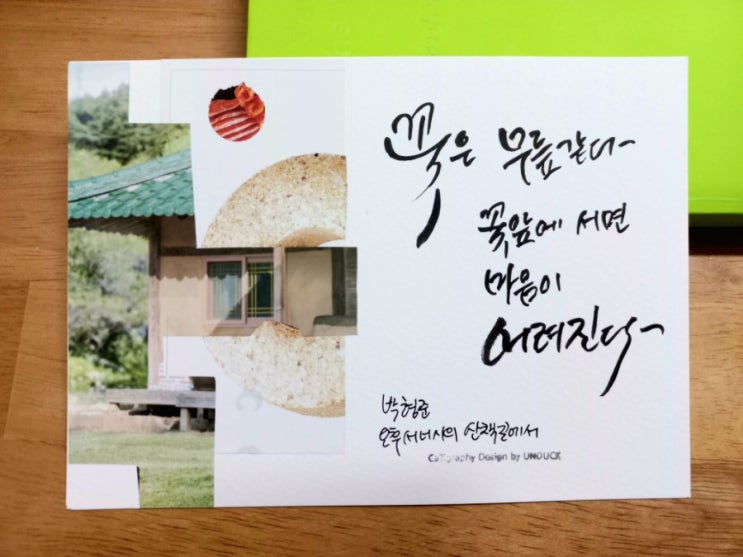 꽃은 무릎같다
꽃앞에 서면
마음이
어려진다
박형준
오후서너시의 산책길에서
Calligraphy Design by UNDUCK